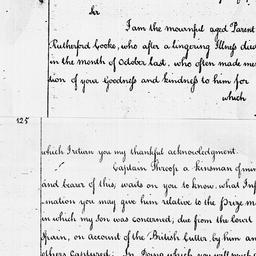 Sir
I am the mournful aged Parent
Rutherford Cooke, who after a lingering Illness died
in the month of October last, who often made men
tion of your Goodness and kindness to him for
which
125
which I return you my thankful acknowledgment.
Captain Throop a kinsman of min
and bearer of this, waits on you to know, what Inf
mation you may give him relative to the Prize m
in which my Son was concerned; due from the Court
Spain, on account of the British Cutter, by him an
others Captured; In doing which you will